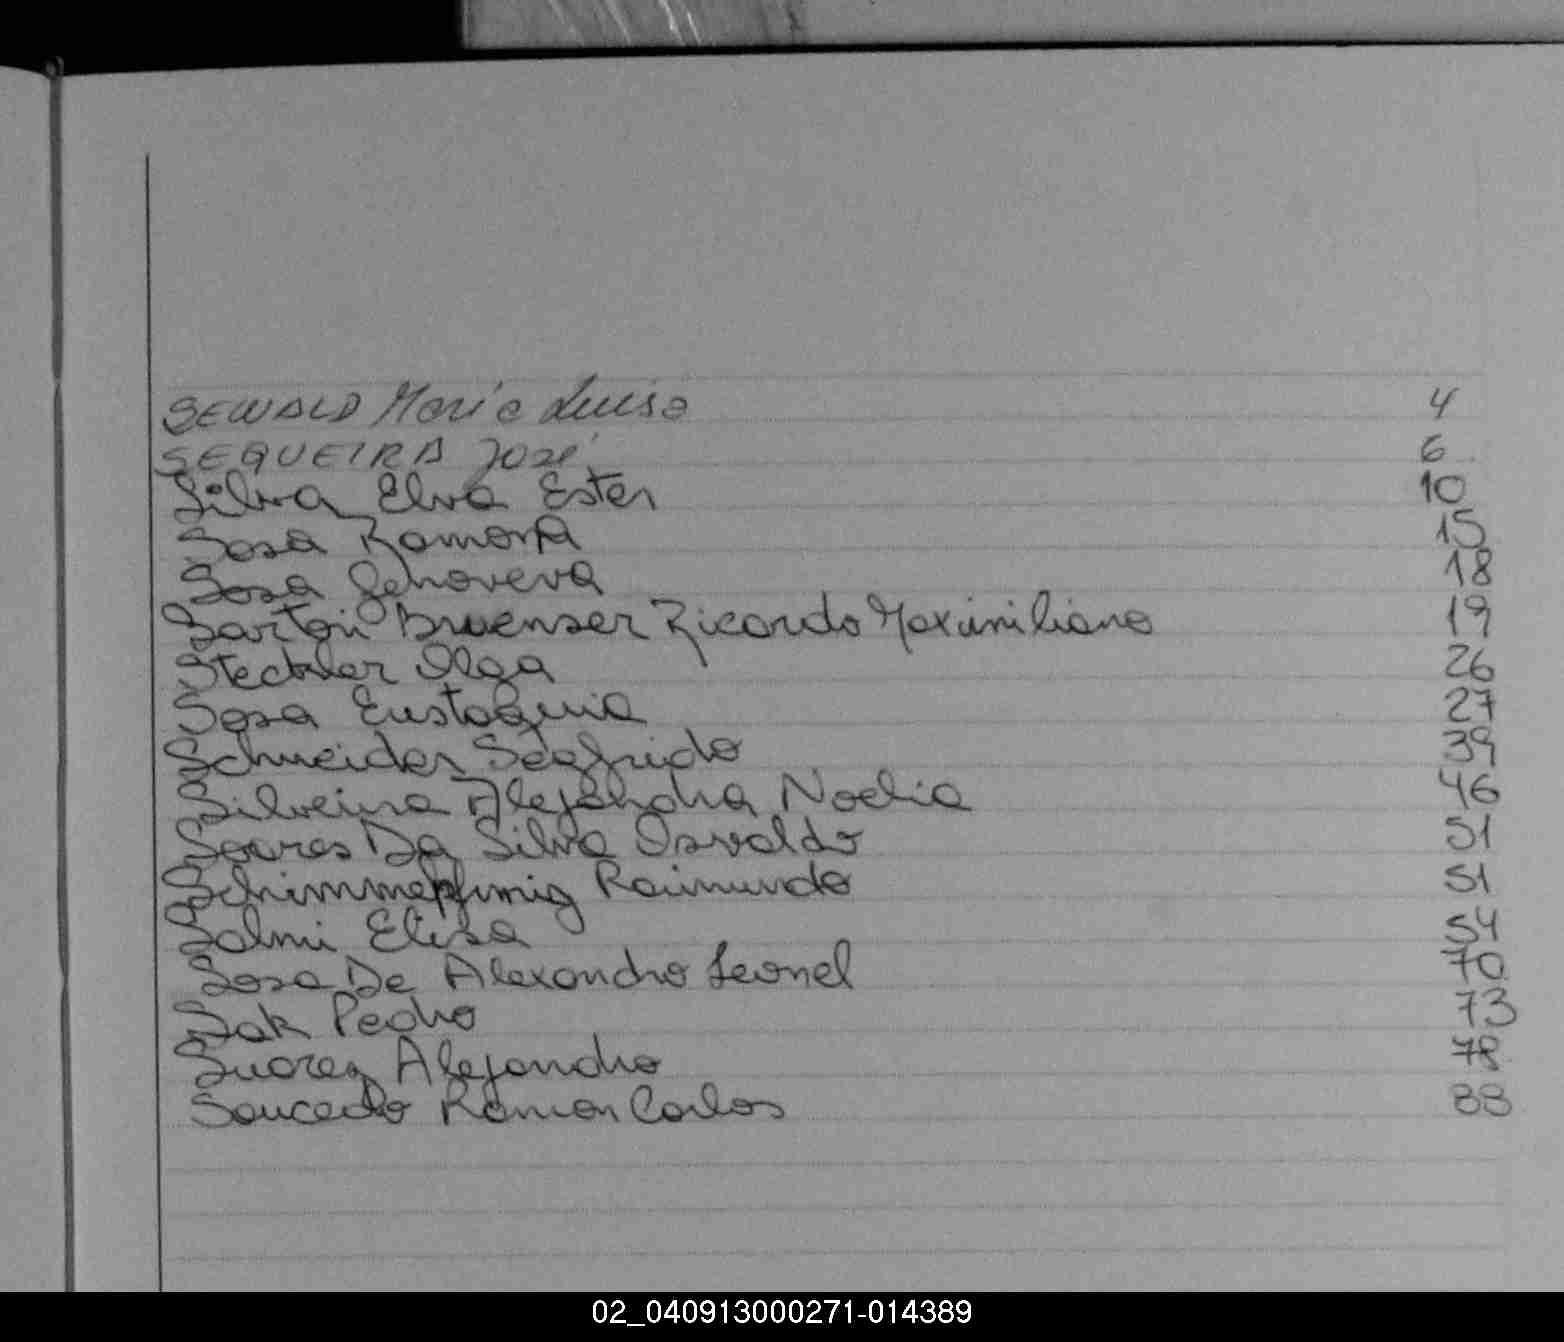 SEWALD María Luisa 4
SEQUEIRA José 6
Silva Elva Ester 10
Sosa Ramona 15
Sosa Genoveva 18
Sartori Bruenser Ricardo Maximiliano 19
Steckler Olga 26
Sosa Eustaquia 27
Schneider Segfrido 39
Silveira Alejandra Noelia 46
Soares Da Silva Osvaldo 51
Raimundo 51
Salmi Elisa 54
Sosa De Alexandro Leonel 70
Sak Pedro 73
Suarez Alejandro 78
Saucedo Ramon Carlos 88
02_040913000271-014389